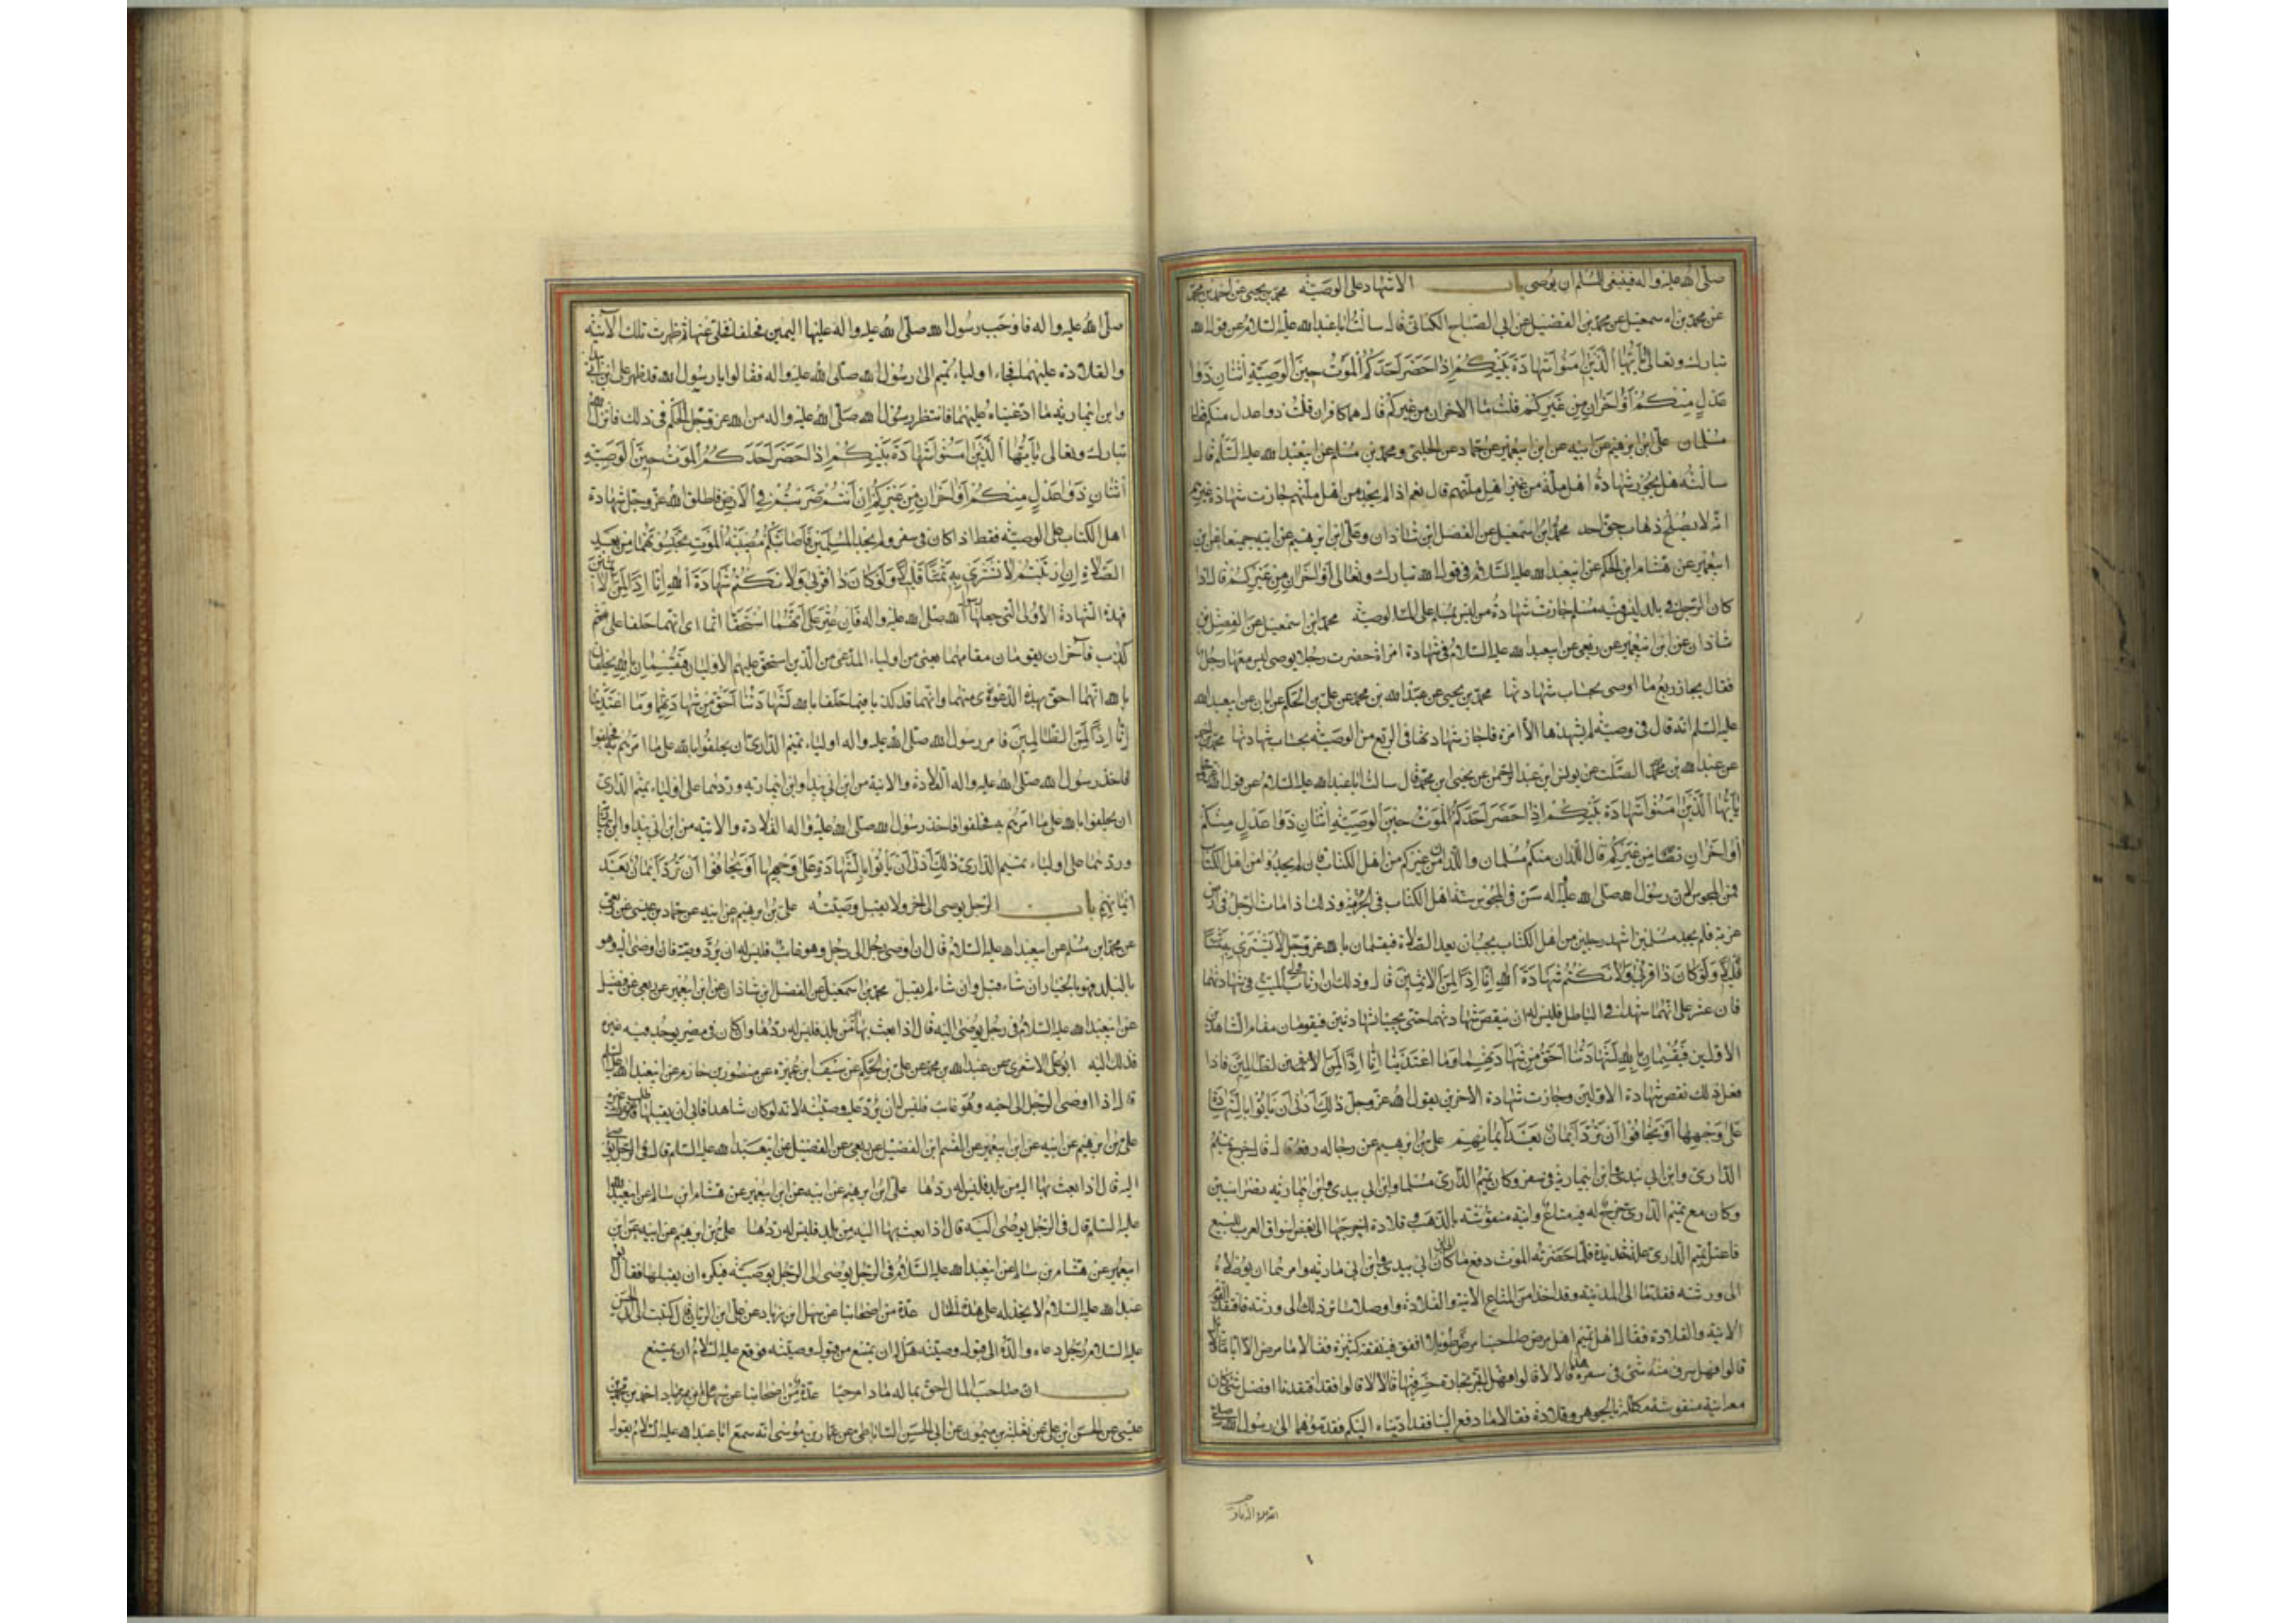 صلى الله عليه واله فينبغى للمسلم ان يوصى باب الاشهاد على الوصية محمد بن يحيى عن احمد بن محمد
عن محمد بن اسمعيل عن محمد بن الفضيل عن ابى الصباح الكنانى قال سالت ابا عبد الله عليه السلام عن قول الله
تبارك وتعالى يا ايها الذين امنوا شهادة بينكم اذا حضر احدكم الموت حين الوصية اثنان ذوا
عدل منكم او اخران من غيركم قلت ما الاخران من غيركم قال هما كافران قلت ذوا عدل منكم فقال
مسلمان على ابن ابرهيم عن ابيه عن ابن ابيعمير عن حماد عن الحلبى ومحمد بن مسلم عن ابيعبد الله عليه السلم قال
سالته هل يجوز شهادة اهل ملة من غير اهل ملتهم قال نعم اذا لم يجد من اهل ملتهم جازت شهادة غيرهم
انه لا يصلح ذهاب حق احد محمد ابن اسمعيل عن الفضل ابن شاذان وعلى ابن ابرهيم عن ابيه جميعا عن ابن
ابيعمير عن هشام ابن الحكم عن ابيعبد الله عليه السلام فى قول الله تبارك وتعالى او اخران من غيركم قال اذا
كان الرجل فى بلد ليس فيه مسلم جازت شهادة من ليس بمسلم على الوصية محمد ابن اسمعيل عن الفضل بن
شاذان عن ابن ابيعمير عن ربعى عن ابيعبد الله عليه السلام فى شهادة امراة حضرت رجلا يوصى ليس معها رجل
فقال يجاز ربع ما اوصى بحساب شهادتها محمد بن يحيى عن عبد الله بن محمد عن على بن الحكم عن ابان عن ابيعبد الله
عليه السلم انه قال فى وصية لم يشهدها الا امرة فاجاز شهادتها فى الربع من الوصية بحساب شهادتها محمد بن احمد
عن عبد الله بن محمد الصلت عن يونس ابن عبد الرحمن عن يحيى ابن محمد قال سالت ابا عبد الله عليه السلام عن قول الله
يا ايها الذين امنوا شهادة بينكم اذا حضر احدكم الموت حين الوصية اثنان ذوا عدل منكم
او اخران من غيركم قال اللذان منكم مسلمان واللذان من غيركم من اهل الكتاب فان لم يجدوا من اهل الكتاب
فمن المجوس لان رسول الله صلى الله عليه واله سن فى المجوس سنة اهل الكتاب فى الجزية وذلك اذا مات الرجل فى ارض
غربة فلم يجد مسلمين اشهد رجلين من اهل الكتاب يحبسان بعد الصلاة فيقسمان بالله عز وجل لا نشترى به ثمنا
قليلا ولو كان ذا قربى ولا نكتم شهادة الله انا اذا لمن الاثمين قال وذلك ان ارتاب ولى الميت فى شهادتهما
فان عثر على انهما شهدا فى الباطل فليس له ان ينقض شهادتهما حتى يجيئ شاهدين فيقومان مقام الشاهدين
الاولين فيقسمان بالله لشهادتنا احق من شهادتهما وما اعتدينا انا اذا لمن الظالمين فاذا
فعل ذلك نقض شهادة الاولين وجازت شهادة الاخرين يقول الله عز وجل ذلك ادنى ان ياتوا بالشهادة
على وجهها او يخافوا ان ترد ايمان بعد ايمانهم على بن ابرهيم عن رجاله رفعه قال خرج تميم
الدارى وابن ابى بيدى وابن ابى مارية فى سفر وكان تميم الدارى مسلما وابن ابى بيدى وابن ابى مارية نصرانيين
وكان مع تميم الدارى خرج له فيه متاع وانية منقوشة بالذهب وقلادة اخرجها الى بعض اسواق العرب للبيع
فاعتل تميم الدارى علة شديدة فلما حضرته الموت دفع ما كان الى ابن ابى بيدى وابن ابى مارية وامرهما ان يوصلاه
الى ورثته فقدما الى المدينة وقد اخذا من المتاع الانية والقلادة واوصلا سائر ذلك الى ورثته فافتقد القوم
الانية والقلادة فقال اهل تميم لهما هل مرض صاحبنا مرضا طويلا انفق فيه نفقة كثيرة فقالا لا ما مرض الا اياما قلائل
قالوا فهل سرق منه شئ فى سفره هذا قالا لا قالوا فهل اتجر تجارة خسر فيها قالا لا قالوا فقد افتقدنا افضل شئ كان
معه انية منقوشة مكللة بالجوهر وقلادة فقالا ما دفع الينا فقد اديناه اليكم فقدموهما الى رسول الله صلى
صلى الله عليه واله فاوجب رسول الله صلى الله عليه واله عليهما اليمين فحلفا فخلى عنهما ثم ظهرت تلك الانية
والقلادة عليهما فجاء اولياء تميم الى رسول الله صلى الله عليه واله فقالوا يا رسول الله قد ظهر على ابن ابى بيدى
وابن ابى مارية ما ادعيناه عليهما فانتظر رسول الله صلى الله عليه واله من الله عز وجل الحكم فى ذلك فانزل الله
تبارك وتعالى يا ايها الذين امنوا شهادة بينكم اذا حضر احدكم الموت حين الوصية
اثنان ذوا عدل منكم او اخران من غيركم ان انتم ضربتم فى الارض فاطلق الله عز وجل شهادة
اهل الكتاب على الوصية فقط اذا كان فى سفر ولم يجد المسلمين فاصابتكم مصيبة الموت تحبسونهما من بعد
الصلاة ان ارتبتم لا نشترى به ثمنا قليلا ولو كان ذا قربى ولا نكتم شهادة الله انا اذا لمن الاثمين
فهذه الشهادة الاولى التى جعلها رسول الله صلى الله عليه واله فان عثر على انهما استحقا اثما اى انهما حلفا على
كذب فاخران يقومان مقامهما يعنى من اولياء المدعى من الذين استحق عليهم الاوليان فيقسمان بالله يحلفان
بالله انهما احق بهذه الدعوى منهما وانهما قد كذبا فيما حلفا بالله لشهادتنا احق من شهادتهما وما اعتدينا
انا اذا لمن الظالمين فامر رسول الله صلى الله عليه واله اولياء تميم الدارى ان يحلفوا بالله على ما امرهم به فحلفوا
فاخذ رسول الله صلى الله عليه واله القلادة والانية من ابن ابى بيدى وابن ابى مارية وردهما على اولياء تميم الدارى
ان يحلفوا بالله على ما امرهم به فحلفوا فاخذ رسول الله صلى الله عليه واله القلادة والانية من ابن ابى بيدى وابن ابى مارية
وردهما على اولياء تميم الدارى ذلك ادنى ان ياتوا بالشهادة على وجهها او يخافوا ان ترد ايمان بعد
ايمانهم باب الرجل يوصى الى اخر ولا يقبل وصيته على بن ابرهيم عن ابيه عن حماد بن عيسى عن ربعى
عن محمد ابن مسلم عن ابيعبد الله عليه السلام قال ان اوصى رجل الى رجل وهو غائب فليس له ان يرد وصيته فان اوصى اليه وهو
بالبلد فهو بالخيار ان شاء قبل وان شاء لم يقبل محمد بن اسمعيل عن الفضل ابن شاذان عن ابن ابيعمير عن ربعى عن فضيل
عن ابيعبد الله عليه السلام فى رجل يوصى اليه قال اذا بعث بها من بلد فليس له ردها وان كان فى مصر يوجد فيه غيره
فذلك اليه ابو على الاشعرى عن عبد الله بن محمد عن على بن الحكم عن سيف ابن عميرة عن منصور بن حازم عن ابيعبد الله عليه السلم
قال اذا اوصى الرجل الى اخيه وهو غائب فليس له ان يرد عليه وصيته لانه لو كان شاهدا فابى ان يقبلها طلب غيره
على بن ابرهيم عن ابيه عن ابن ابيعمير عن القسم ابن الفضيل عن ربعى عن الفضيل عن ابيعبد الله عليه السلام قال فى الرجل يوصى
اليه قال اذا بعث بها اليه من بلد فليس له ردها على ابن ابرهيم عن ابيه عن ابن ابيعمير عن هشام ابن سالم عن ابيعبد الله
عليه السلم قال فى الرجل يوصى اليه قال اذا بعث بها اليه من بلد فليس له ردها على بن ابرهيم عن ابيه عن ابن
ابيعمير عن هشام بن سالم عن ابيعبد الله عليه السلام فى الرجل يوصى الى الرجل بوصية فيكره ان يقبلها فقال ابو
عبد الله عليه السلام لا يخذله على هذه الحال عدة من اصحابنا عن سهل ابن زياد عن على ابن الريان قال كتبت الى ابى الحسن
عليه السلام رجل دعاه والده الى قبول وصيته هل له ان يمتنع من قبول وصيته فوقع عليه السلام ان يمتنع
باب ان صاحب المال احق بماله ما دام حيا عدة من اصحابنا عن سهل بن زياد احمد بن محمد بن
عيسى عن الحسن ابن على عن ثعلبة بن ميمون عن ابى الحسين الساباطى عن عمار بن موسى انه سمع ابا عبد الله عليه السلام يقول